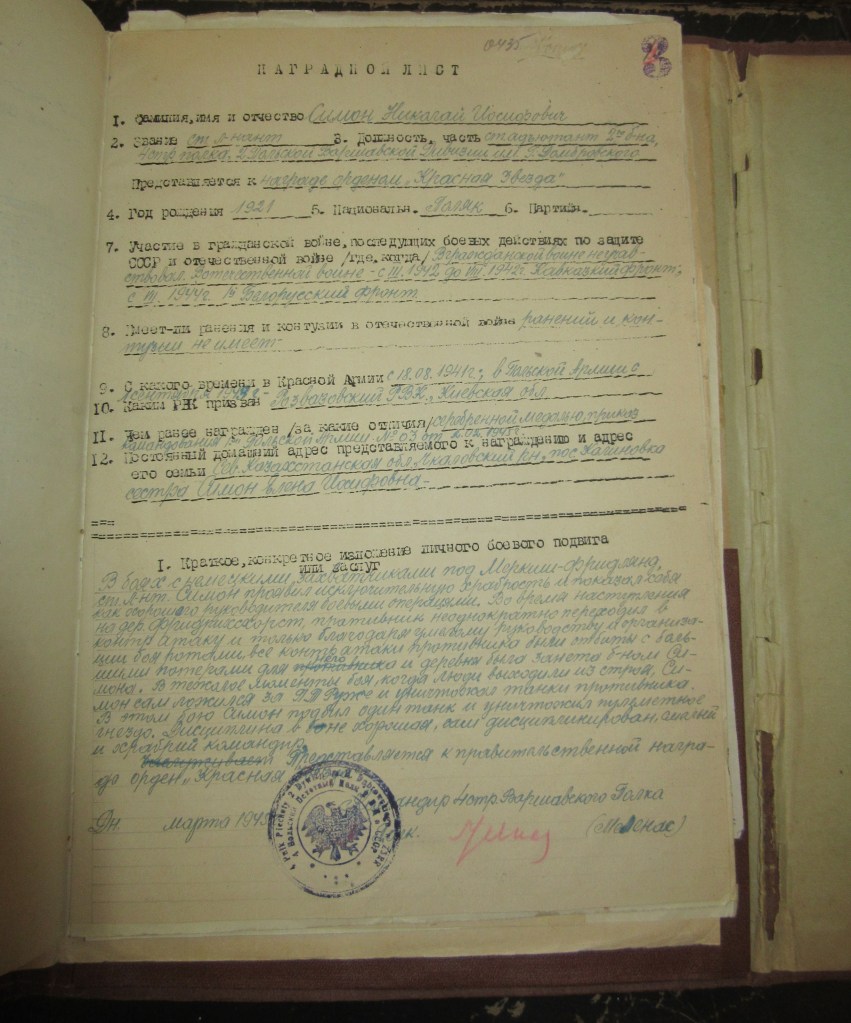 0435
НАГРАДНОЙ ЛИСТ
1. Фамилия, имя и отчество Симон Николай Иосифович
2. Звание ст. л-нант 3. Должность, часть ст. адъютант 2го б-на,
4 стр. полка, 2 Польской Варшавской Дивизии им. Г. Домбровского
Представляется к награде орденом "Красная Звезда"
4. Год рождения 1921 5. Национальн. Поляк 6. Партийн.
7. Участие в гражданской войне, последующих боевых действиях по защите
СССР и отечественной войне /где, когда/ В гражданской войне не участ-
ствовал, В отечественной войне - с III. 1942 до 1942г. Кавказкий фронт,
с III. 1944г. 1й Белорусский фронт
8. Имеет-ли ранения и контузии в отечественной войне ранений и кон-
тузии не имеет-
9. С какого времени в Красной Армии с 18.08.1941г.; в Польской Армии с
10. Каким РВК призван РВК, Киевская обл
11. Чем ранее награжден /за какие отличия/ серебренной медалью, приказ
командования 1й Польской Армии № 03 от
12. Постоянный домашний адрес представляемого к награждению и адрес
его семьи Сев. Казахстанская обл. Чкаловский р-н, пос. Калиновка
сестра Симон Елена Иосифовна-
===
1. Краткое, конкретное изложение личного боевого подвига
или заслуг
В боях с немецкими захватчиками под Меркиш-Фридлянд,
ст. л-нт. Симон проявил исключительную храбрость и показал себя
как хорошого руководителя боевыми операциями. Во время наступления
на дер. противник неоднократно переходил в
контр атаку и только благодаря умелому руководству и организа-
ции боя ротами, все контр атаки противника были отбиты с боль-
шими потерами для него и деревня была занета б-ном Си-
мона. В тежолое моменты боя, когда люди выходили из строя, Си-
мон сам ложился за ПТРуже и уничтожал танки противника.
В этом бою Симон подбил один танк и уничтожил пулеметное
гнездо. Дисциплина в б-не хорошая, сам дисциплинирован, смелый
и храбрый командир.
Представляется к правительственной награ-
де орден "Красная
андир 4 стр. Варшавского Полка
Дн. марта 1945
к. (Меленас)
4 Pułk Piechoty 2 Dywizji
4 Польский Пехотный Полк